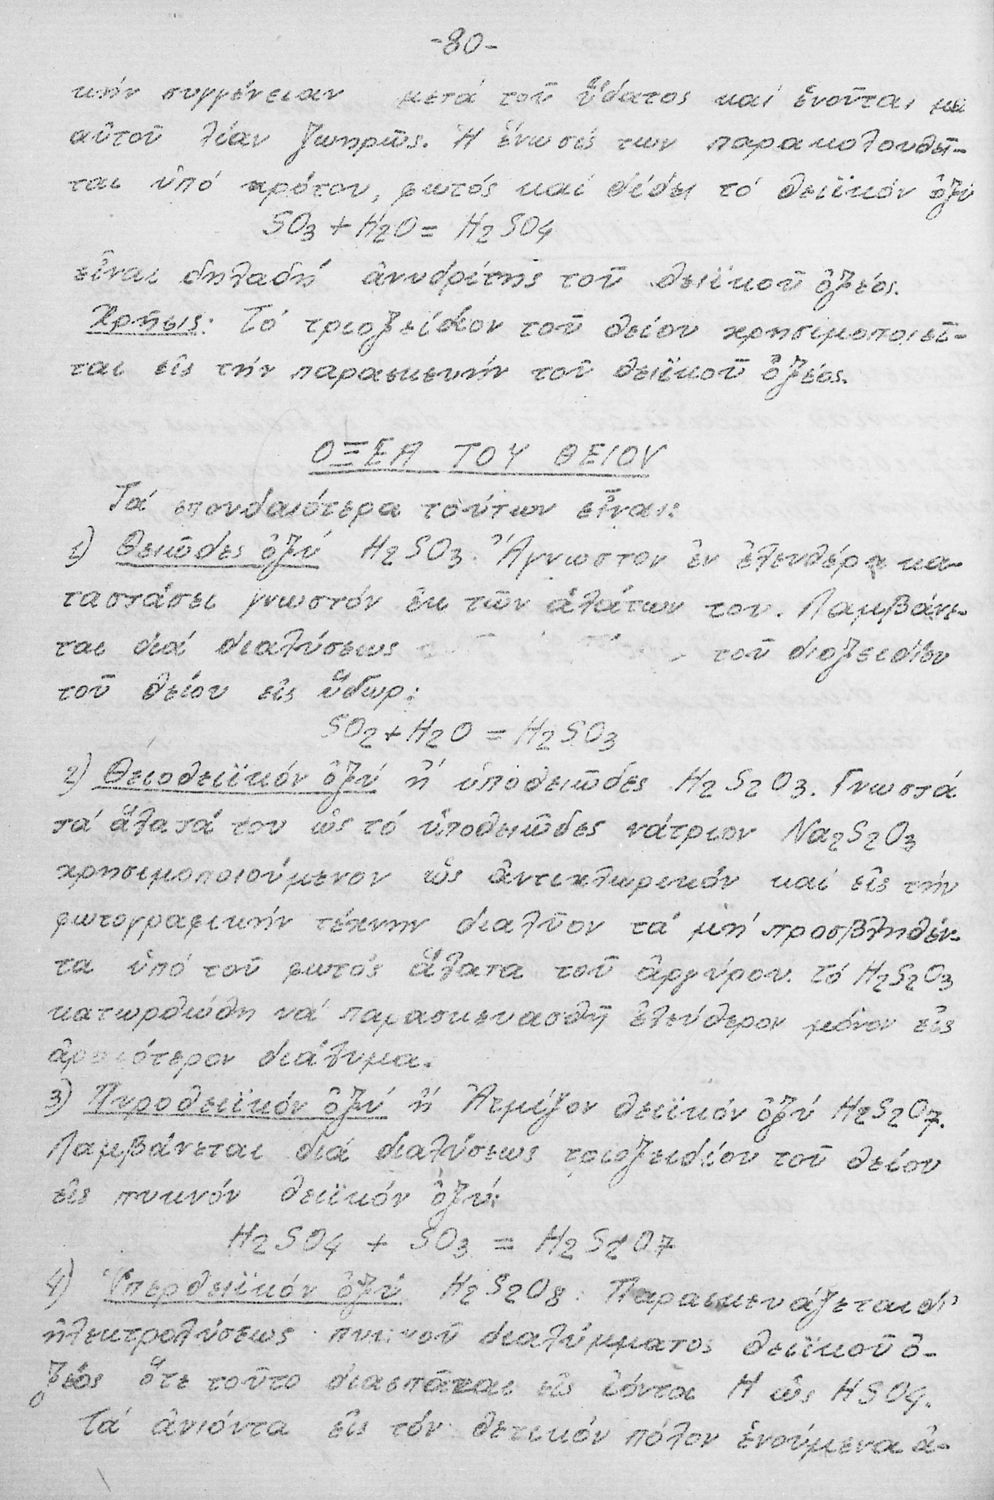 -80-
κήν συγγένειαν μετά τοῦ ὕδατος καί ἑνοῦται με
αὐτοῦ λίαν ζωηρῶς. Ἡ ἕνωσίς των παρακολουθεῖ-
ται ὑπό κρότου, φωτός καί δίδει τό θειϊκόν ὀξύ
SO3 + H2O = H2SO4
εἶναι δηλαδή ἀνυδρίτης τοῦ θειϊκοῦ ὀξέος.
Χρῆσις: Τό τριοξείδιον τοῦ θείου χρησιμοποιεῖ-
ται εἰς τήν παρασκευήν τοῦ θειϊκοῦ ὀξέος.
ΟΞΕΑ ΤΟΥ ΘΕΙΟΥ
Τά σπουδαιότερα τούτων εἶναι:
1) Θειῶδες ὀξύ H2SO3. Ἄγνωστον ἐν ἐλευθέρᾳ κα-
ταστάσει γνωστόν ἐκ τῶν ἁλάτων του. Λαμβάνε-
ται διά διαλύσεως τοῦ διοξειδίου
τοῦ θείου εἰς ὕδωρ:
SO2 + H2O = H2SO3
2) Θειοθειϊκόν ὀξύ ἤ ὑποθειῶδες H2S2O3. Γνωστά
τά ἅλατά του ὡς τό ὑποθειῶδες νάτριον Na2S2O3
χρησιμοποιούμενον ὡς ἀντιχλωρικόν καί εἰς τήν
φωτογραφικήν τέχνην διαλῦον τά μή προσβληθέν-
τα ὑπό τοῦ φωτός ἅλατα τοῦ ἀργύρου. Τό H2S2O3
κατωρθώθη νά παρασκευασθῇ ἐλεύθερον μόνον εἰς
ἀραιότερον διάλυμα.
3) Πυροθειϊκόν ὀξύ ἤ Ἀτμίζον θειϊκόν ὀξύ H2S2O7.
Λαμβάνεται διά διαλύσεως τριοξειδίου τοῦ θείου
εἰς πυκνόν θειϊκόν ὀξύ:
H2SO4 + SO3 = H2S2O7
4) Ὑπερθειϊκόν ὀξύ H2S2O8: Παρασκευάζεται δι'
ἠλεκτρολύσεως πυκνοῦ διαλύμματος θειϊκοῦ ὀ-
ξέος ὅτε τοῦτο διασπᾶται εἰς ἰόντα H ὡς HSO4.
Τά ἀνιόντα εἰς τόν θετικόν πόλον ἑνούμενα ἀ-